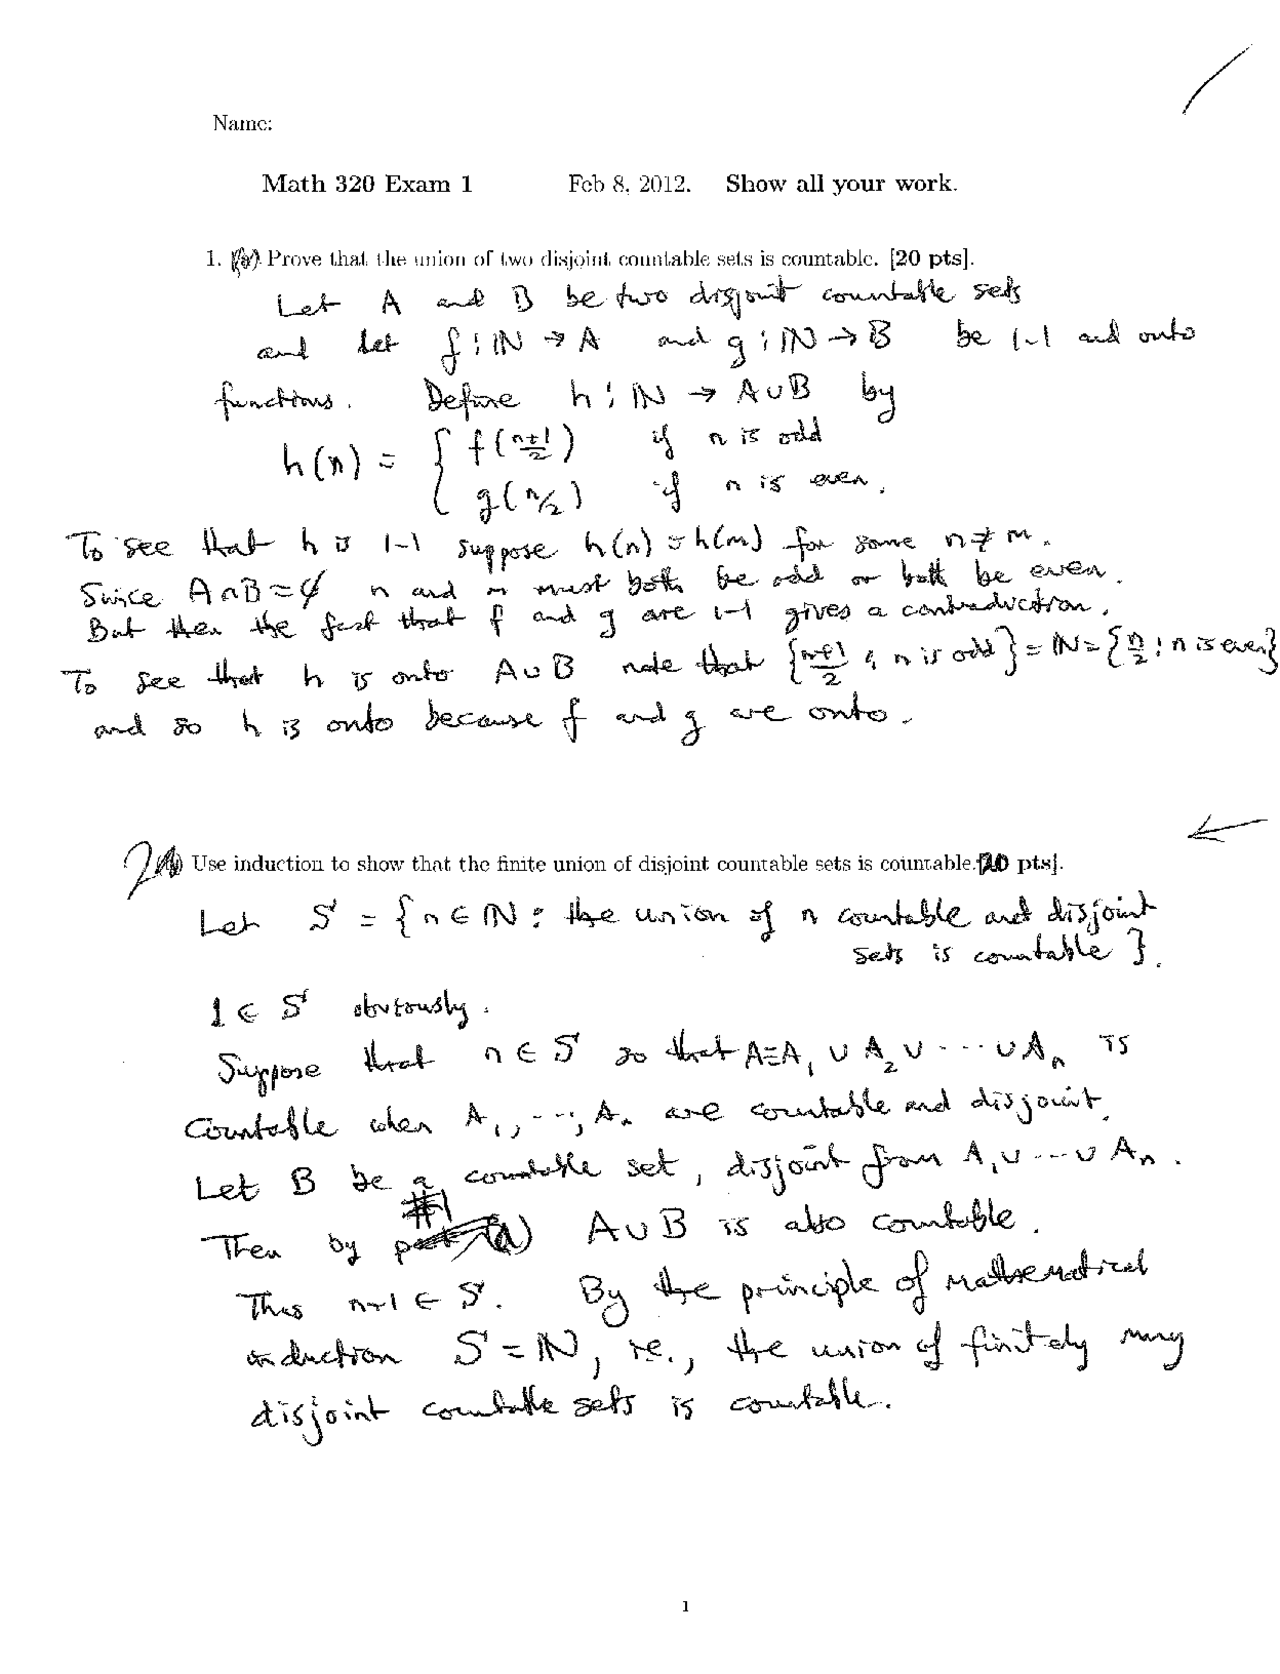 Name:
Math 320 Exam 1 Feb 8, 2012. Show all your work.
1. Prove that the union of two disjoint countable sets is countable. [20 pts].
Let A and B be two disjoint countable sets
and let f : ℕ → A and g : ℕ → B be 1-1 and onto
functions. Define h : ℕ → A∪B by
h(n) = { f((n+1)/2) if n is odd
g(n/2) if n is even.
To see that h is 1-1 suppose h(n) = h(m) for some n ≠ m.
Since A∩B = ∅ n and m must both be odd or both be even.
But then the fact that f and g are 1-1 gives a contradiction.
To see that h is onto A∪B note that {(n+1)/2 : n is odd} = ℕ = {n/2 : n is even}
and so h is onto because f and g are onto.
2 Use induction to show that the finite union of disjoint countable sets is countable. [20 pts].
Let S = {n ∈ ℕ : the union of n countable and disjoint
sets is countable}.
1 ∈ S obviously.
Suppose that n ∈ S so that A = A₁ ∪ A₂ ∪ ··· ∪ Aₙ is
countable when A₁, ···, Aₙ are countable and disjoint.
Let B be a countable set, disjoint from A₁∪ ··· ∪ Aₙ.
Then by #1 A∪B is also countable.
Thus n+1 ∈ S. By the principle of mathematical
induction S = ℕ, i.e., the union of finitely many
disjoint countable sets is countable.
1